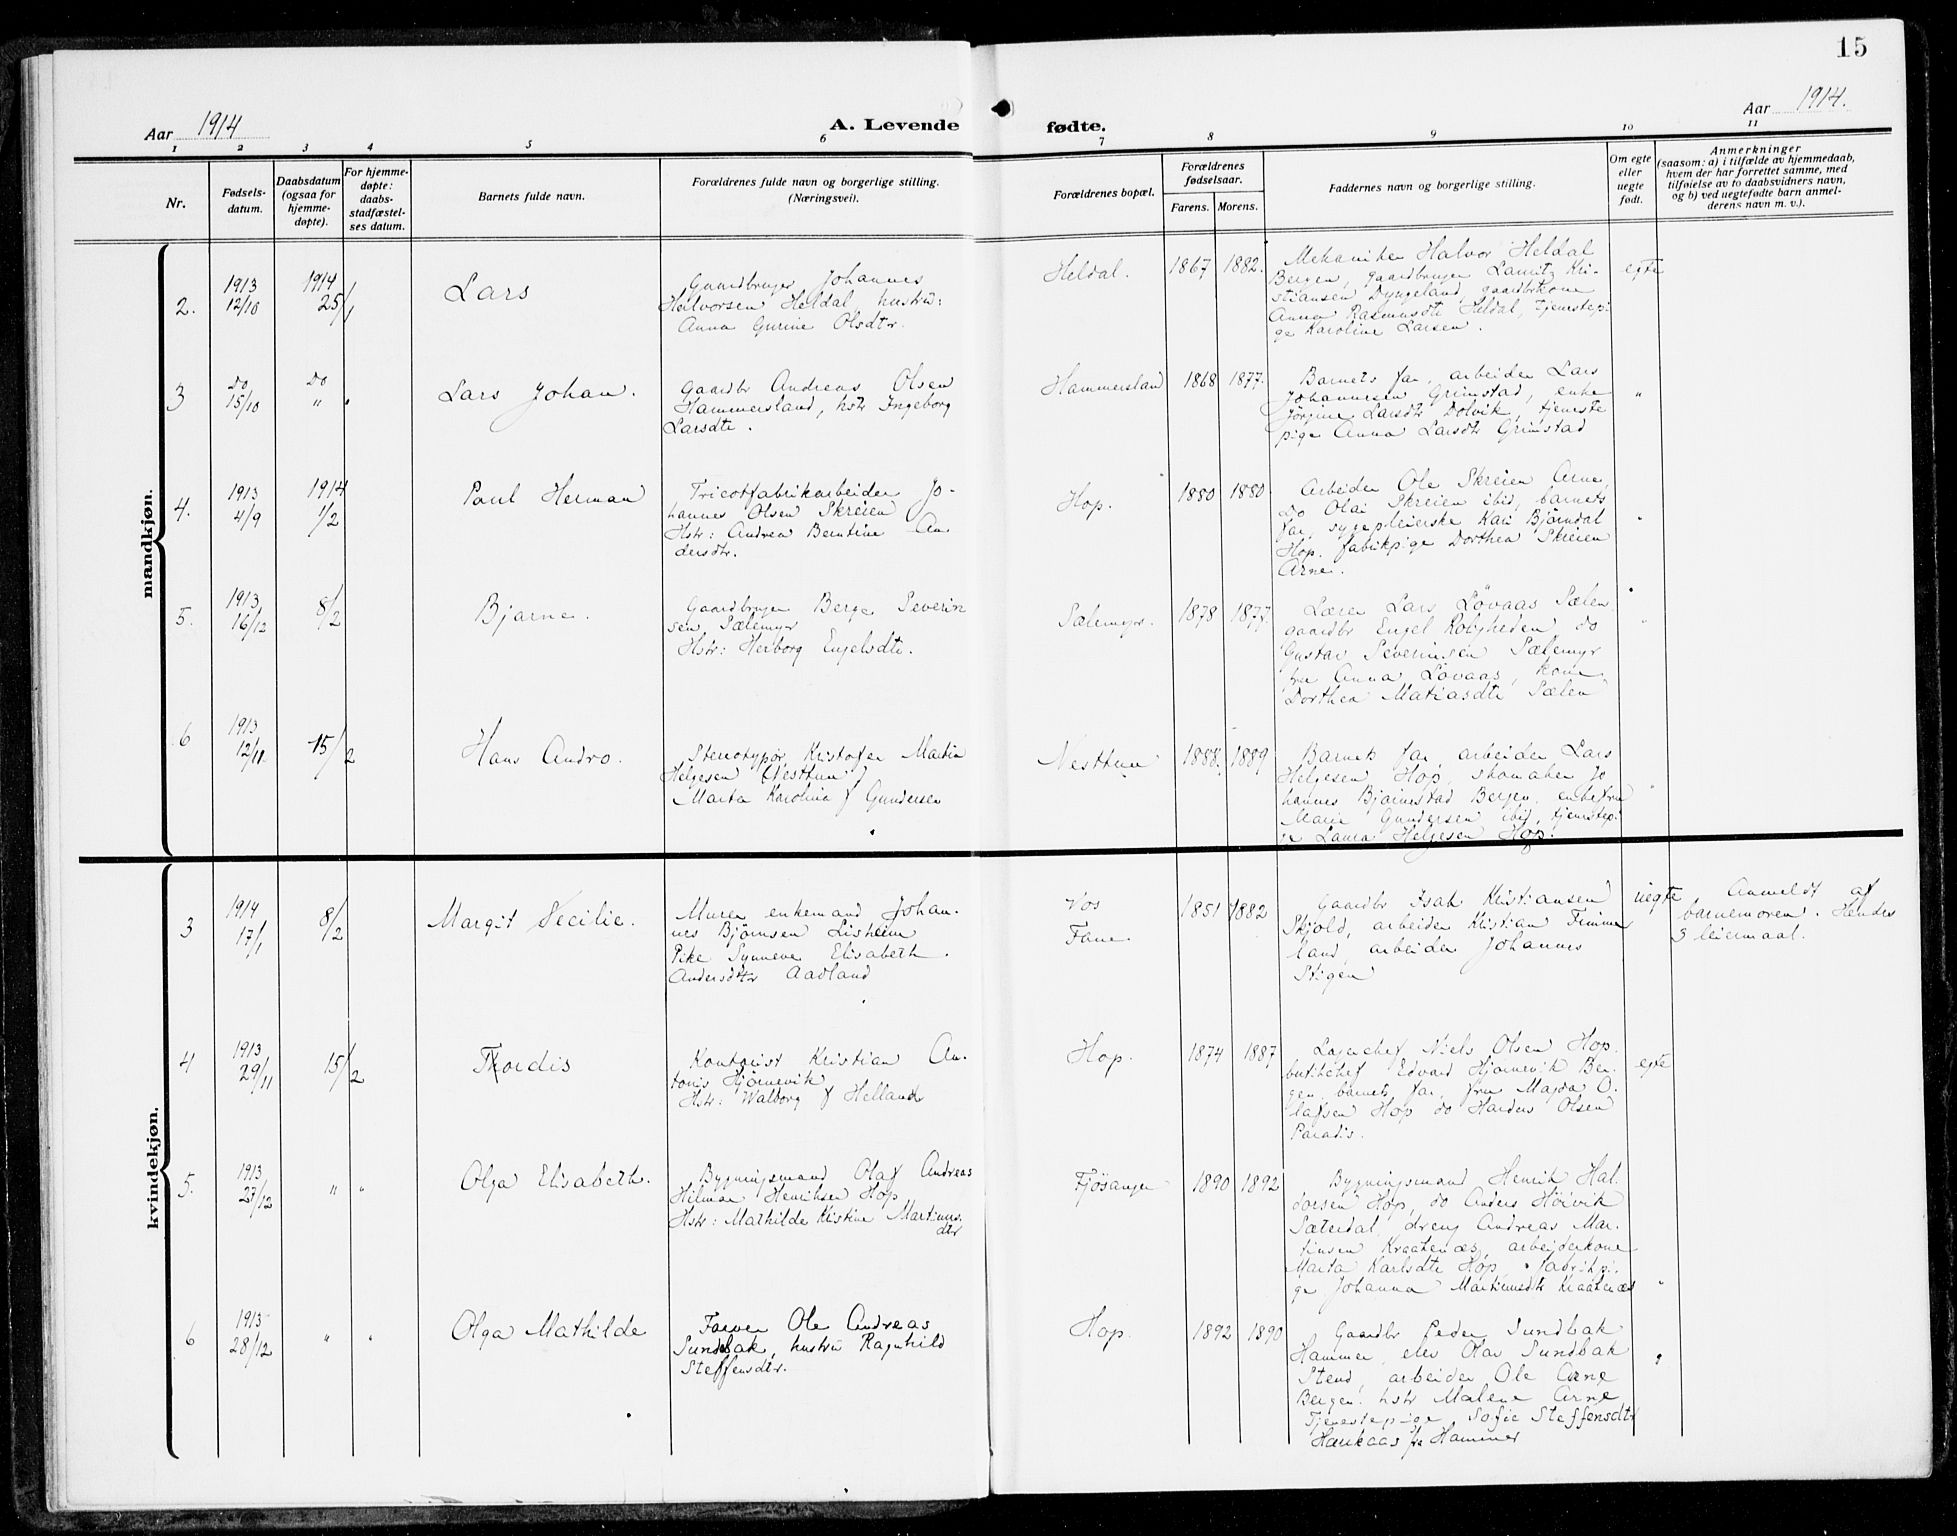 15
Aar 1914
A. Levende
fødte.
Aar 1914.
1 2 3 4 5 6 7 8 9 10 11
Nr.
Fødsels-
datum.
Daabsdatum
(ogsaa for
hjemme-
døpte).
For hjemme-
døpte:
daabs-
stadfæstel-
ses datum.
Barnets fulde navn.
Forældrenes fulde navn og borgerlige stilling.
(Næringsvei).
Forældrenes bopæl.
Forældrenes
fødselsaar.
Farens. Morens.
Faddernes navn og borgerlige stilling.
Om egte
eller
uegte
født.
Anmerkninger
(saasom: a) i tilfælde av hjemmedaab,
hvem der har forrettet samme, med
tilføielse av to daabsvidners navn,
og b) ved uegtefødte barn anmel-
derens navn m. v.).
mandkjøn.
2.
1913
12/10
1914
25/1
Lars
Gaardbruger Johannes
Halvorsen Heldal, hustru:
Anna Gurine Olsdtr.
Heldal.
1867 1882.
Mekaniker Halvor Heldal
Bergen, gaardbruger Lauritz Kri-
stiansen Dyngeland, gaardbrkone
Anna Rasmusdtr Heldal, tjenestepi
ge Karoline Larsen.
egte
3
Do
15/10
Do
"
Lars Johan.
Gaardbr Andreas Olsen
Hammersland, hstr Ingeborg
Larsdtr.
Hammersland
1868 1877.
Barnets far, arbeider Lars
Johannesen Grimstad, enke
Jørgine Larsdtr Dolvik, tjeneste
pige Anna Larsdtr Grimstad
"
4.
1913
4/9
1914
1/2
Paul Herman
Tricotfabrikarbeider Jo-
hannes Olsen Skreien
Hstr: Andrea Berntine An
dersdtr.
Hop.
1880 1880
Arbeider Ole Skreien Arne,
Do Olai Skreien ibid, barnets
far, sygepleierske Kari Bjørndal
Hop. fabrikpige Dorthea Skreien
Arne.
"
5.
1913
16/12
8/2
Bjarne.
Gaardbruger Berge Severin
sen, Sælemyr
Hstr: Herborg Engelsdtr.
Sælemyr.
1878 1877.
Lærer Lars Løvaas Sælen
gaardbr Engel Rolygheden do
Gustav Severinsen Sælemyr
fru Anna Løvaas, kone
Dorthea Matiasdtr Sælen
"
6
1913
12/11
15/2
Hans Andro.
Stereotypør Kristofer Martin
Helgesen (Nesttun)
Marta Karolina f Gundersen
Nesttun
1888. 1889
Barnets far, arbeider Lars
Helgesen Hop, skomaker Jo
hannes Bjørnestad Bergen, enkefru
Marie Gundersen ibid, tjenestepi
ge Laura Helgesen Hop.
"
kvindekjøn.
3
1914
17/1
8/2
Margit Cecilie.
Murer, enkemand Johan-
nes Bjørnsen Lisheim
Pike Synneve Elisabeth
Andersdtr Aadland
Vos
Fane.
1851 1882
Gaardbr Isak Kristiansen
Skjold, arbeider Kristian Timmer
land, arbeider Johannes
Stigen
uegte
Anmeldt af
barnemoren. Hendes
3 leiermaal.
4
1913
29/11
15/2
Thordis
Kontorist Kristian An-
tonis Hjørnevik
Hstr: Walborg f Helland
Hop.
1874 1887
Lagerchef Niels Olsen Hop
butikchef Edvard Hjørnevik Ber-
gen, barnets far, fru Magda O-
lafsen Hop do Olsen
Paradis.
egte
5.
1913
27/12
" "
Olga Elisabeth.
Bygningsmand Olaf Andreas
Hilmar Henriksen Hop
Hstr: Mathilde Kristine Martinus-
dtr
Fjøsanger
1890 1892
Bygningsmand Henrik Hal-
dorsen Hop, do Anders Høivik
Sæterdal, dreng Andreas Mar-
tinsen Kraakenæs, arbeiderkone
Marta Karlsdtr Hop, fabrikpi-
ge Johanna Martinusdtr Kraakenæs
"
6
1913
28/12
" "
Olga Mathilde
Farver Ole Andreas
Sundbak, hustru Ragnhild
Steffensdtr.
Hop.
1892 1890
Gaardbr Peder Sundbak
Hammer, elev Olav Sundbak
Stend, arbeider Ole Arne
Bergen, hstr Malene Arne
Tjenestepige Sofie Steffensdtr
Haukaas fra Hammer
"